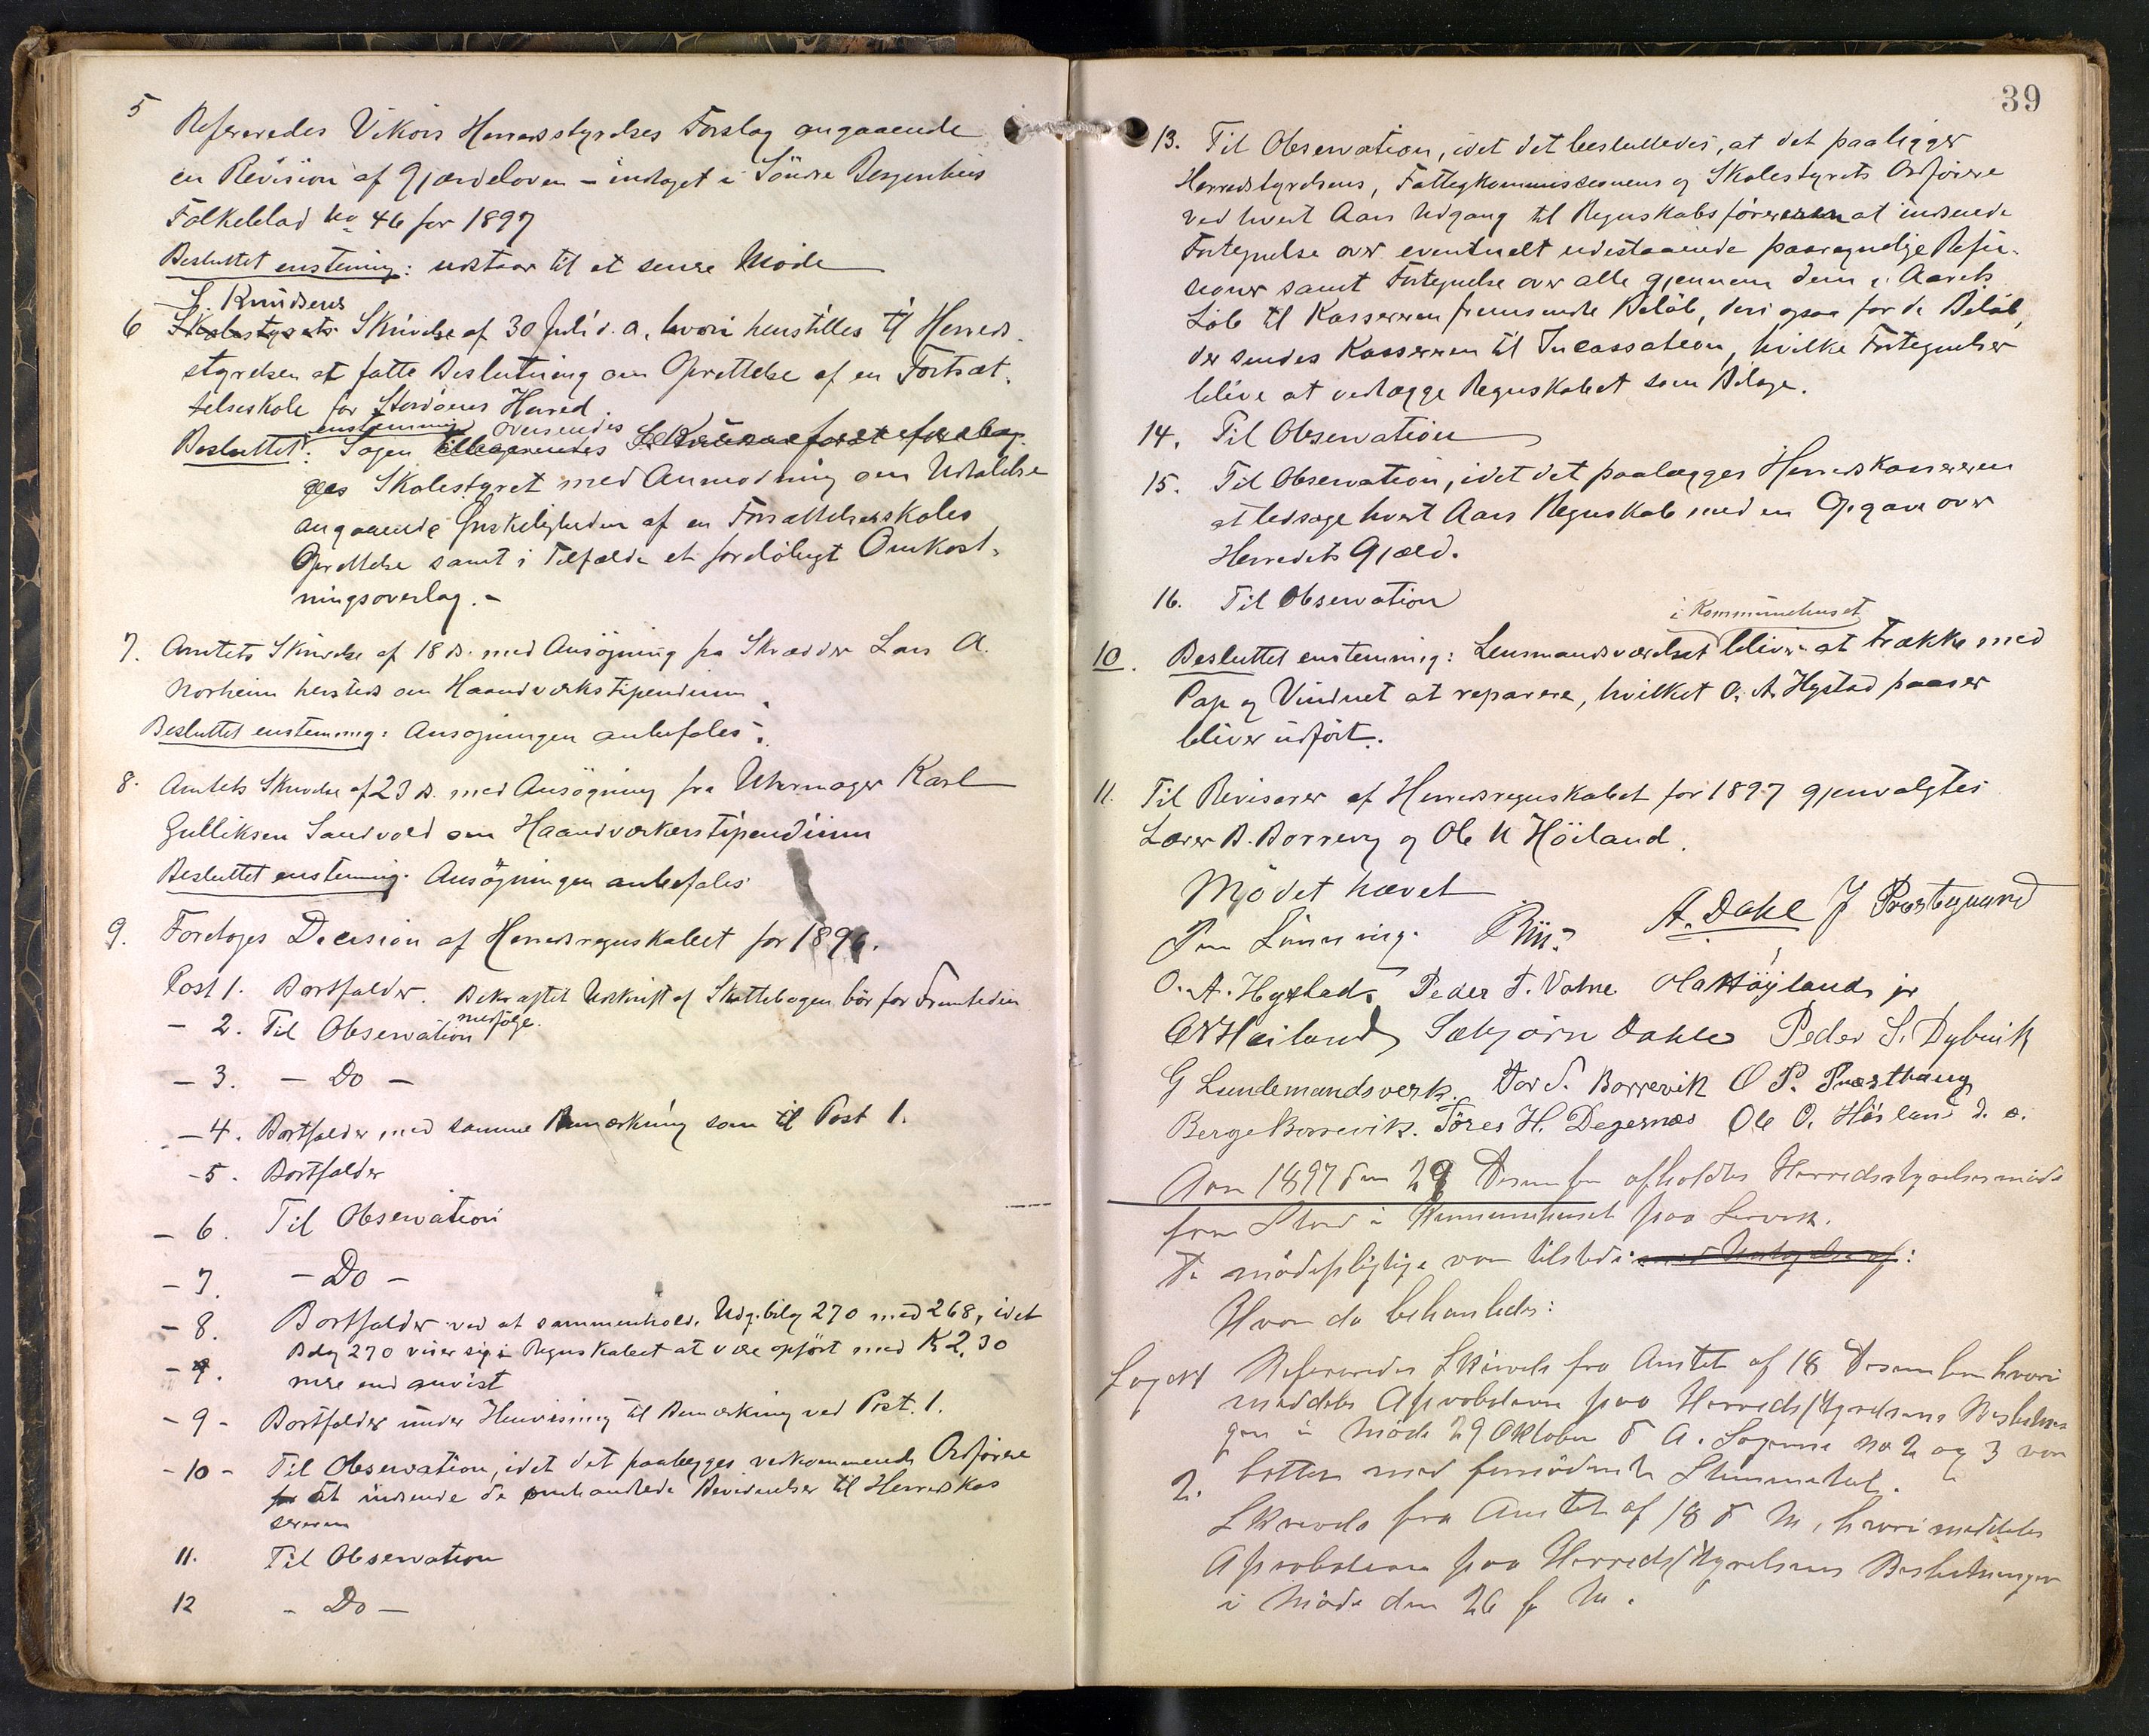 5 Refereredes Vikörs Herredsstyrelses Forslag angaaende
en Revision af Gjærdeloven – indtaget i Söndre Bergenhus
Folkeblad No 46 for 1897
Besluttet enstemmig: udstaar til et senere Möde
S. Knudsens
6 Skolestyrets Skrivelse af 30 Juli d. a. hvori henstilles til Herreds-
styrelsen at fatte Beslutning om Oprettelse af en Fortsæt-
telseskole for Stordöens Herred.
enstemmig oversendes
Besluttet: Sagen
Skolestyret med Anmodning om Udtalelse
angaaende Önskeligheden af en Forsættelsesskoles
Oprettelse samt i Tilfælde et forelöbigt Omkost-
ningsoverlag. –
7. Amtets Skrivelse af 18 ds. med Ansögning fra Skrædder Lars A.
Norheim hersteds om Haandværkstipendium.
Besluttet enstemmig: Ansögningen anbefales.
8. Amtets Skrivelse af 23 ds. med Ansögning fra Uhrmager Karl
Gulliksen Sandvold om Haandværkerstipendium
Besluttet enstemmig. Ansögningen anbefales
9. Foretoges Decision af Herredsregnskabet for 1896.
Post 1. Bortfalder. Bekræftet Udskrift af Skattebogen bör for Fremtiden
medfölge.
– 2. Til Observation
– 3. – Do –
– 4. Bortfalder med samme Bemærkning som til Post 1.
– 5. Bortfalder
– 6. Til Observation
– 7. – Do –
– 8. Bortfalder ved at sammenholde Udg.bilag 270 med 268, idet
Bilag 270 viser sig i Regnskabet at være opfört med K 2,30
mere end anvist
– 9 – Bortfalder under Henvisning til Bemærkning ved Post. 1.
– 10 – Til Observation, idet det paalægges vedkommende Ordförere
at indsende de omhandlede Bevidnelser til Herredskas
sereren
11. Til Observation
12 – Do –
39
13. Til Observation, idet det besluttedes, at det paaligger
Herredstyrelsens, Fattigkommissionens og Skolestyrets Ordförere
ved hvert Aars Udgang til Regnskabsföreren at indsende
Fortegnelse over eventuelt udestaaende paaregnelige Refu-
sioner samt Fortegnelse over alle gjennem dem i Aarets
Löb til Kassereren fremsendte Belöb, deri ogsaa for de Belöb,
der sendes Kassereren til Incassation, hvilke Fortegnelser
blive at vedlægge Regnskabet som Bilage.
14. Til Observation
15. Til Observation, idet det paalægges Herredskassereren
at ledsage hvert Aars Regnskab med en Opgave over
Herredets Gjæld.
16. Til Observation
i Kommunehuset
10. Besluttet enstemmig: Lensmandsværelset bliver at trække med
Pap og Vinduet at reparere, hvilket O. A. Hystad paaser
bliver udfört.
11. Til Revisorer af Herredsregnskabet for 1897 gjenvalgtes
Lærer B. Borrevig og Ole N Höiland.
Mödet hævet
Lönning. A. Dahl J Prestegaard
O. A. Hystad. Peder T. Valvne Ola Höyland jr
Heiland Sæbjörn Dahle Peder S. Dybvik
G Lundemandsverk. Tor S. Borrevik O P. Præsthaug
Berge Borrevik. Töres H. Degernæs Ole O. Höiland d. æ.
Aar 1897 den 29 Desember afholdtes Herredsstyrelsesmöde
for Stord i Kommunehuset paa Lervik.
De mödepligtige var tilstede:
Hvor da behandledes:
Sag No 1 Refereredes Skrivelse fra Amtet af 18 Desember hvori
meddeles Approbation paa Herredsstyrelsens Beslutnin
gen i Möde 29 Oktober d A. Sagerne No 2 og 3 var
fattet med fornödent Stemmetal.
2. Skrivelse fra Amtet af 18 d M, hvori meddeles
Approbation paa Herredsstyrelsens Beslutninger
i Möde den 26 f M.